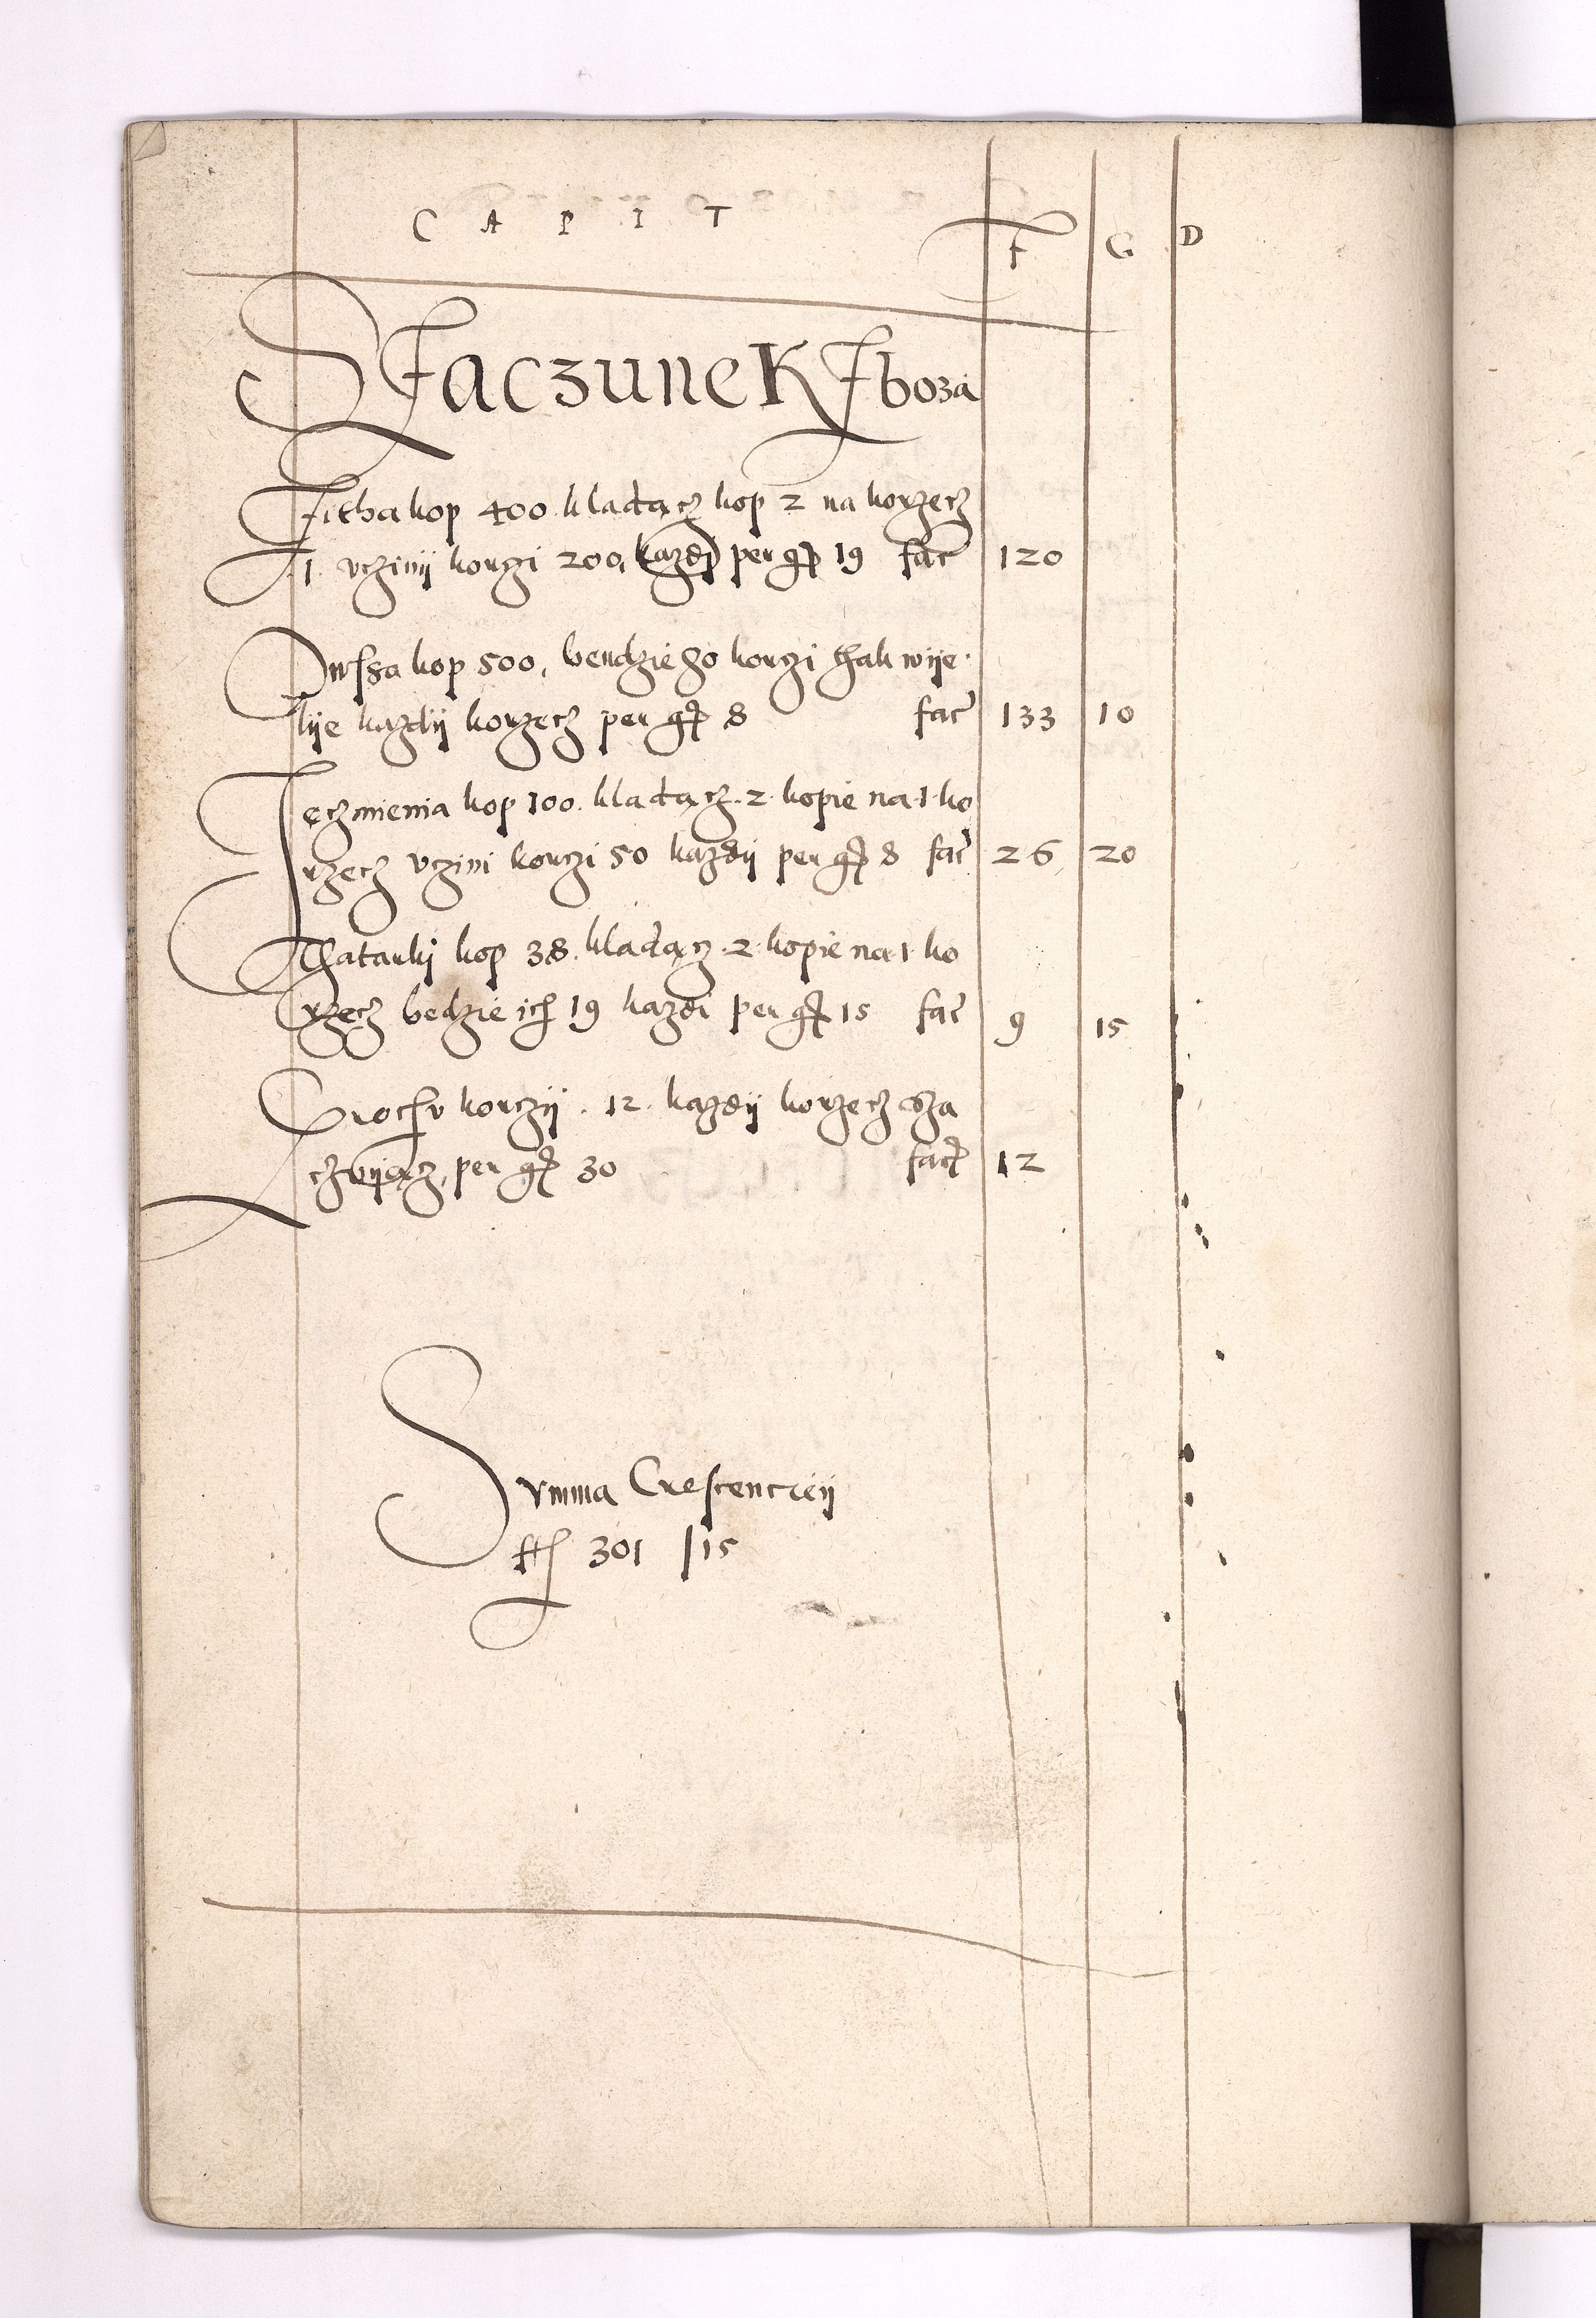 C A P I T F G D
Staczunek Zboza
Zitha kop 400 kladącz kop 2 na korzecz
1 vczinij korczi 200, kazdi per gr 19 facit 120
Owssa kop 500, bendzie go korczi thak wije
lije kazdij korzecz per gr 8 facit 133 10
Jęczmienia kop 100 kladącz 2 kopie na 1 ko
rzecz vczini korczi 50 kazdij per gr 8 facit 26 20
Thatarkj kop 38 kladącz 2 kopie na 1 ko
rzecz bedzie ich 19 kazdi per gr 15 facit 9 15
Grochv korczij 12 kazdij korzecz
per gr 30 facit 12
Svmma Crescencieij
fl 301 /15